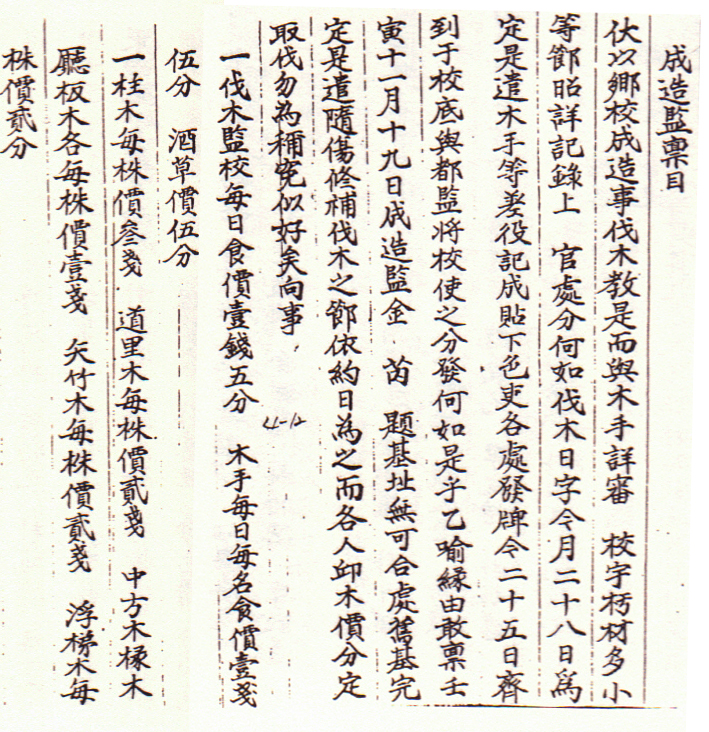 成造監稟目
伏以鄕校成造事伐木敎是而與木手詳審 校宇朽材多小
等節昭詳記錄上 官處分何如伐木日字今月二十八日爲
定是遣木手等差役記成貼下色吏各處發牌令二十五日齊
到于校底與都監將校使之分發何如是乎乙喩緣由敢稟壬
寅十一月十九日成造監金 芮 題基址無可合處舊基完
定是遣隨傷修補伐木之節依約日爲之而各人卬木價分定
取伐勿爲稱寃似好矣向事
一伐木監校每日食價壹錢五分 木手每日每名食價壹戔
伍分 酒草價伍分
一柱木每株價參戔 道里木每株價貳戔 中方木椽木
廳板木各每株價壹戔 矢竹木每株價貳戔 浮梯木每
株價貳分